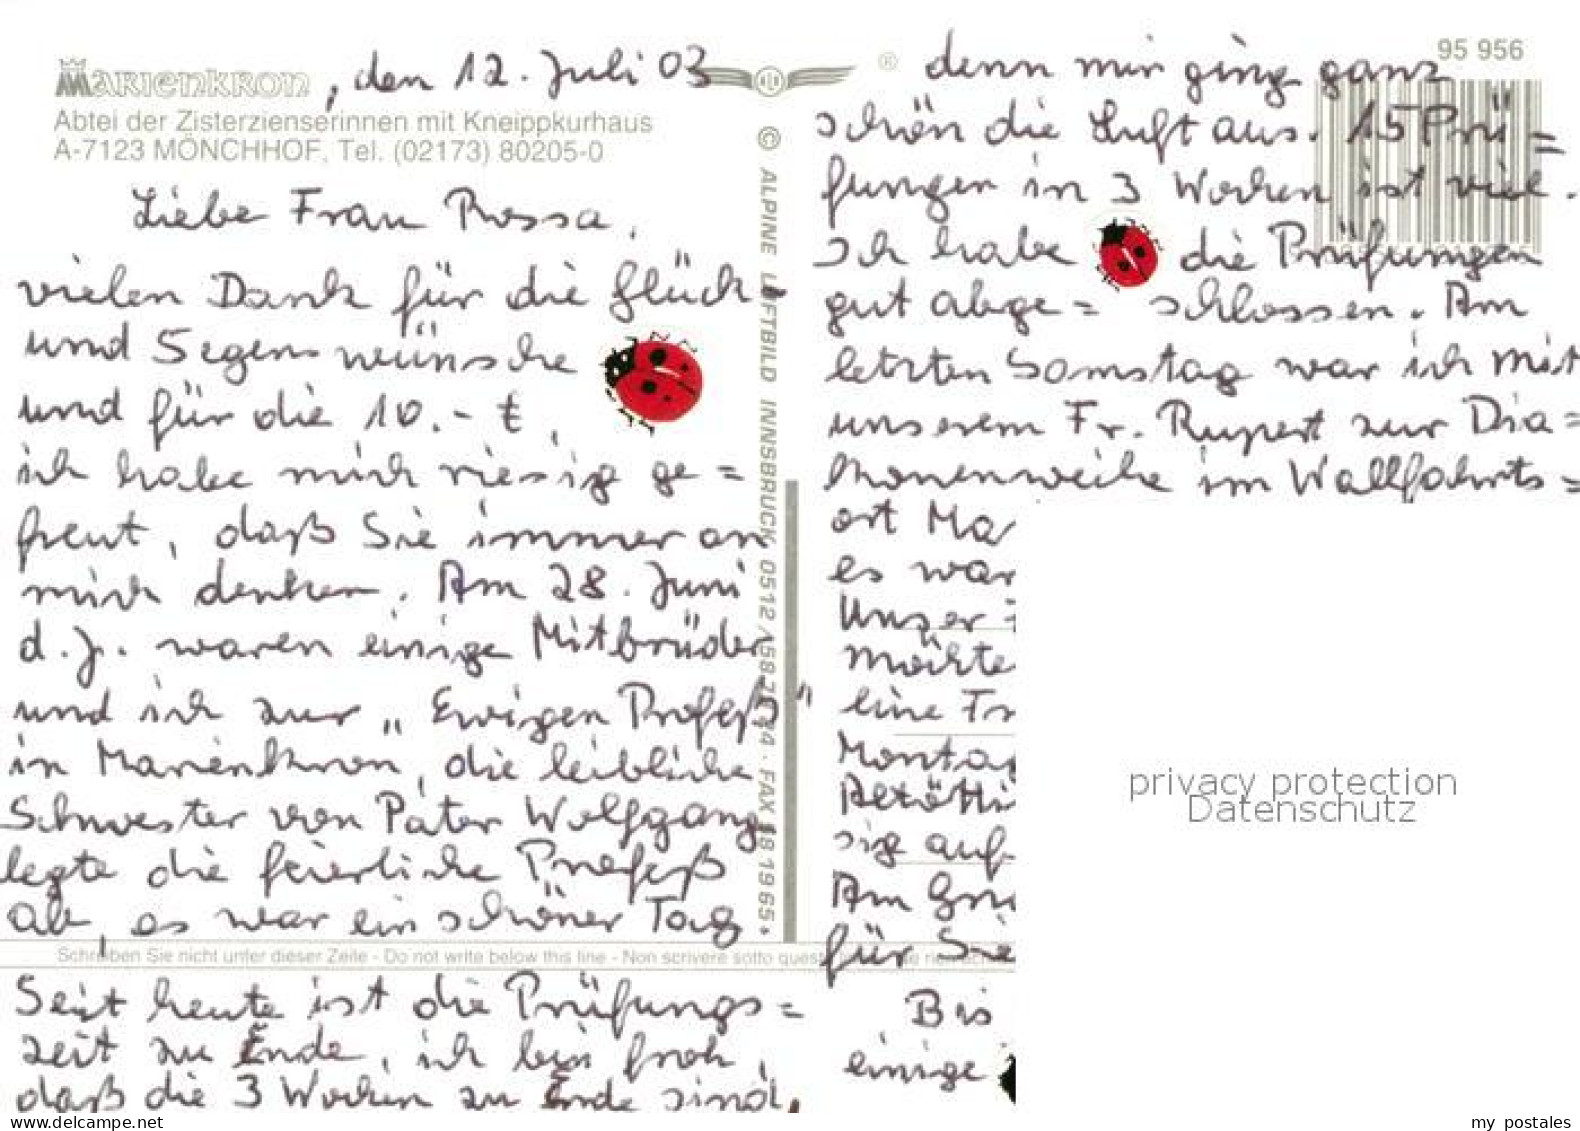 Marienkron, den 12. Juli 03
Abtei der Zisterzienserinnen mit Kneippkurhaus
A-7123 MÖNCHHOF, Tel. (02173) 80205-0
Liebe Frau Rossa,
vielen Dank für die Glück-
und Segenswünsche
und für die 10.- €,
ich habe mich riesig ge=
freut, daß Sie immer an
mich denken. Am 28. Juni
d. J. waren einige Mitbrüder
und ich zur „Ewigen Profeß"
in Marienkron, die leibliche
Schwester von Pater Wolfgang
legte die feierliche Profeß
ab, es war ein schöner Tag
Schreiben Sie nicht unter dieser Zeile - Do not write below this line - Non scrivere sotto
Seit heute ist die Prüfungs=
zeit zu Ende, ich bin froh,
daß die 3 Wochen zu Ende sind,
© ALPINE LUFTBILD INNSBRUCK, 0512
FAX
®
95 956
denn mir ging ganz
schön die Luft aus. 15 Prü=
fungen in 3 Wochen ist viel.
Ich habe die Prüfungen
gut abge= schlossen. Am
letzten Samstag war ich mit
unserem Fr. Rupert zur Dia=
konenweihe im Wallfahrts=
ort Ma
es war
Unser
Möchte
eine Fr
Montag
sig auf
Am
für Sie
Bis
einige
privacy protection
Datenschutz
www.delcampe.net
my_postales